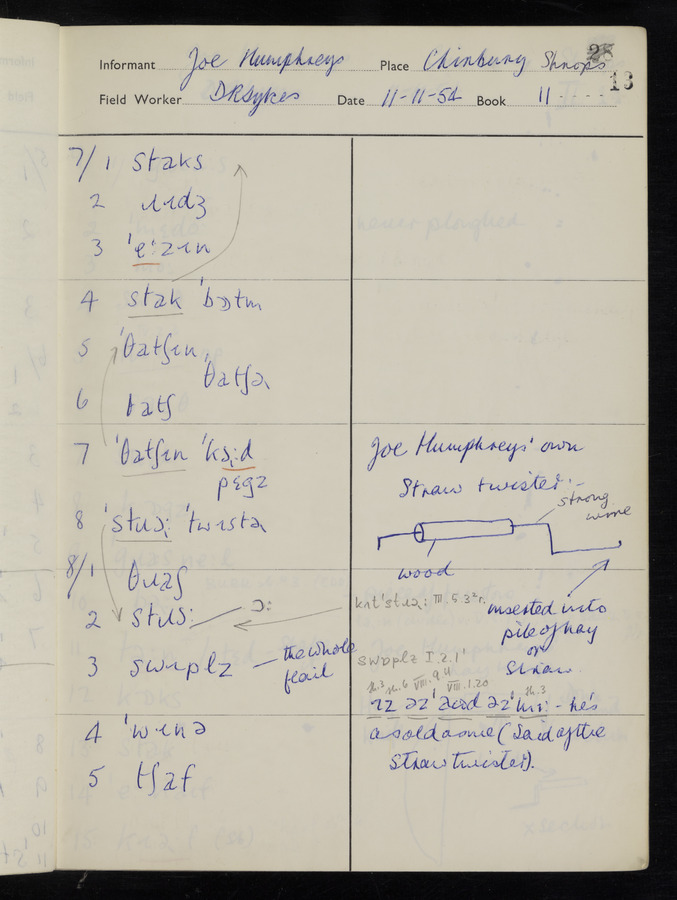 Informant Joe Humphreys Place Chirbury Shrops
28
13
Field Worker D R Sykes Date 11-11-54 Book 11
7/1 staks
2 ɹɪdʒ
3 'e:zɪn
4 stak 'bɔtm
5 'θatʃɪn,
'θatʃə
6 θatʃ
7 'θatʃɪn
pɛgz
8 'stɹɔ: 'twɪstə
8/1 θɹaʃ
2 stɹɔ: ɔ:
3 swɪplz — the whole
flail
4 'wɪnə
5 tʃaf
Joe Humphreys' own
Straw twister:-
strong
wire
wood
inserted into
pile of hay
or
straw
swɪplz I.2.1'
VIII.9.4
VIII.1.20
- he's
as old as me (Said of the
straw twister).